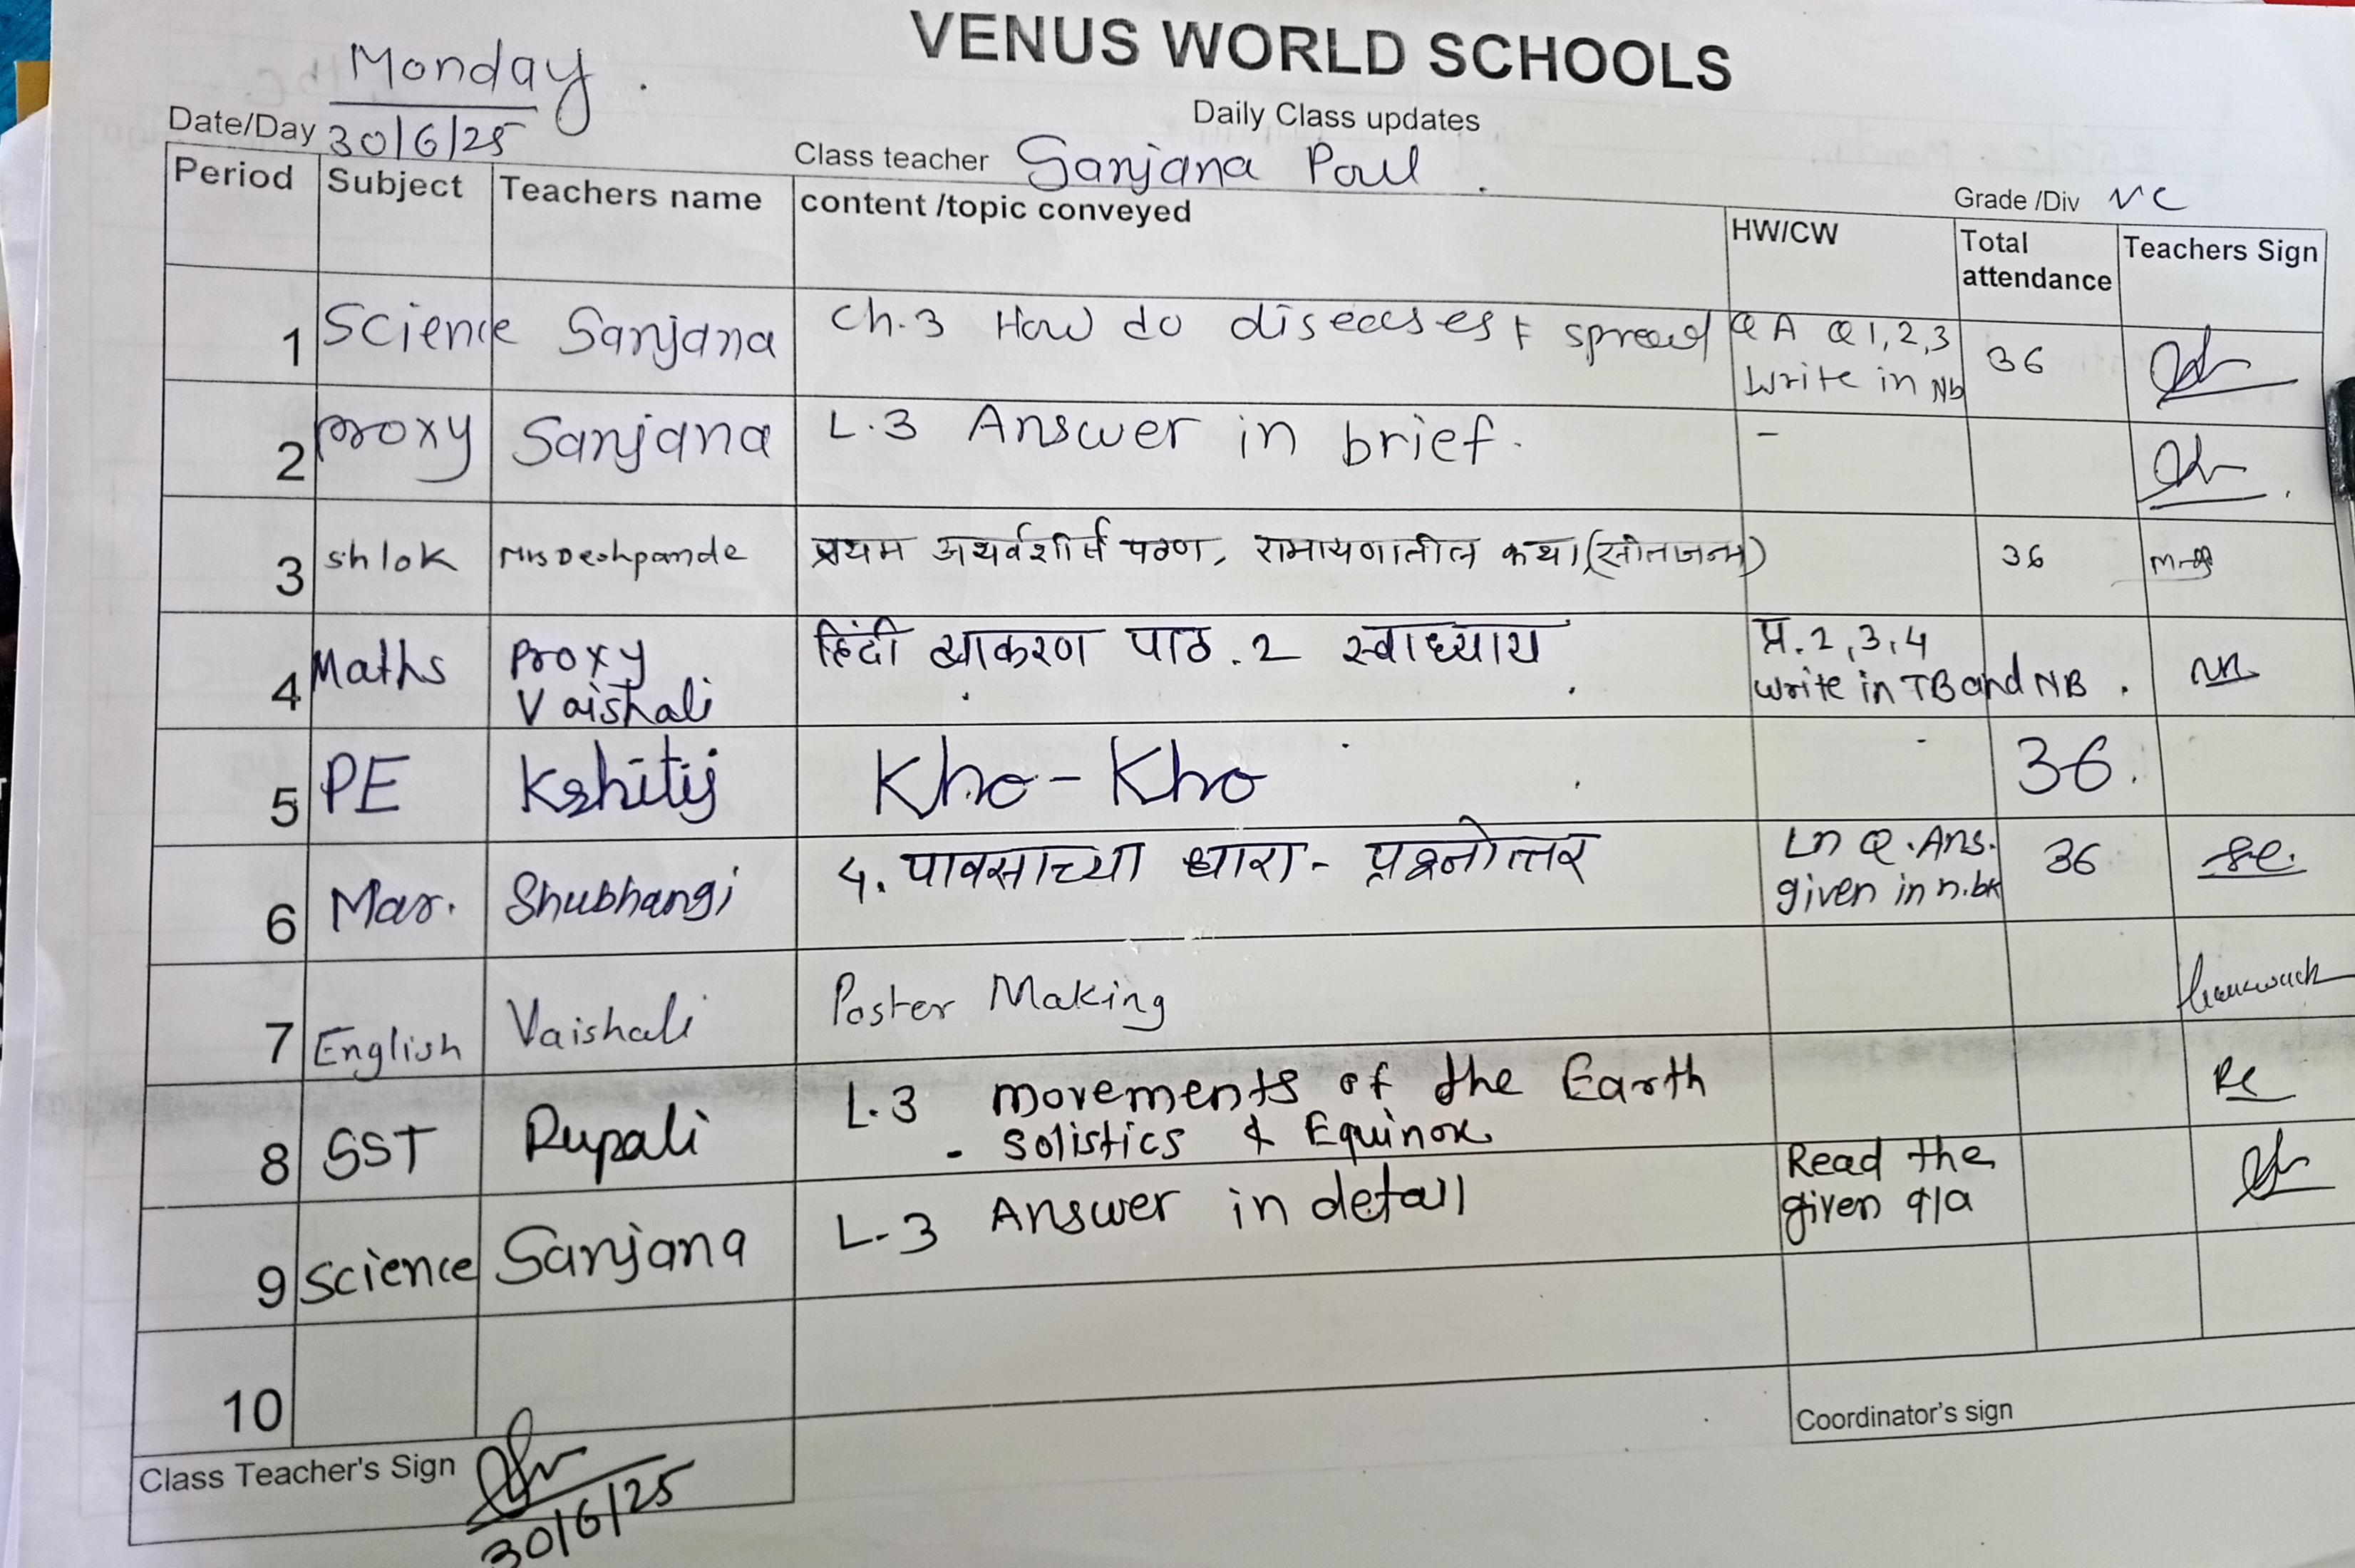 VENUS WORLD SCHOOLS
Daily Class updates
Monday
Date/Day 30/6/25
Class teacher Sanjana Poul
Grade /Div VC
Period Subject Teachers name content /topic conveyed HW/CW Total attendance Teachers Sign
1 Science Sanjana Ch.3 How do diseases spread Q A Q 1,2,3 36
Write in Nb
2 proxy Sanjana L.3 Answer in brief. -
3 shlok Mrs Deshpande प्रथम अथर्वशीर्ष पठण, रामायणातील कथा (सीताजन्म) 36
4 Maths Proxy हिंदी व्याकरण पाठ.2 स्वाध्याय प्र.2,3,4
Vaishali write in TB and NB.
5 PE Kshitij Kho-Kho - 36.
6 Mar. Shubhangi 4. पावसाच्या धारा - प्रश्नोत्तर Ln Q.Ans. 36
given in n.bk
7 English Vaishali Poster Making
8 SST Rupali L.3 movements of the Earth
- solistics & Equinox
9 Science Sanjana L-3 Answer in detail Read the
given q/a
10
Coordinator's sign
Class Teacher's Sign
30/6/25